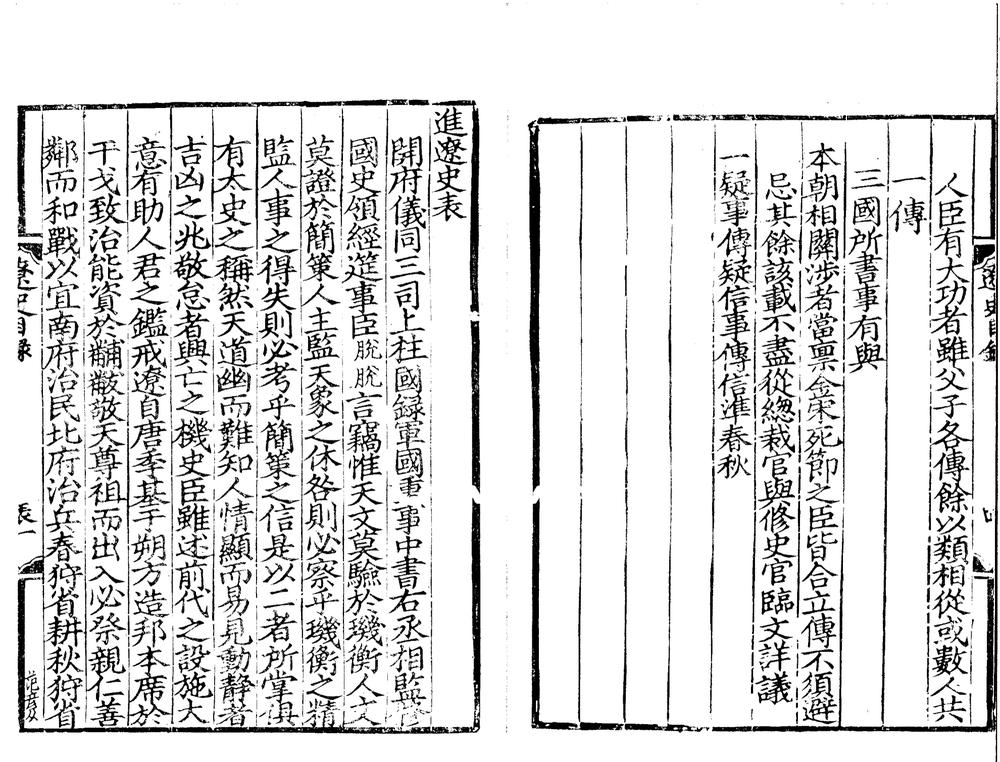 人臣有大功者雖父子各傳餘以類相從或數人共
一傳
三國所書事有與
本朝相關涉者當禀金宋死節之臣皆合立傳不須避
忌其餘該載不盡從緫裁官與修史官臨文詳議
一疑事傳疑信事傳信準春秋
進遼史表
開府儀同三司上柱國録軍國重事中書右丞相監修
國史領經筵事臣脫脫言竊惟天文莫驗於璣衡人文
莫證於簡策人主監天象之休咎則必察乎璣衡之精
監人事之得失則必考乎簡策之信是以二者所掌俱
有太史之稱然天道幽而難知人情顯而易見動静者
吉凶之兆敬怠者興亡之機史臣雖述前代之設施大
意有助人君之鑑戒遼自唐季基于朔方造邦本席於
干戈致治能資於黼黻敬天尊祖而出入必祭親仁善
鄰而和戰以宜南府治民北府治兵春狩省耕秋狩省
遼史目録
表一